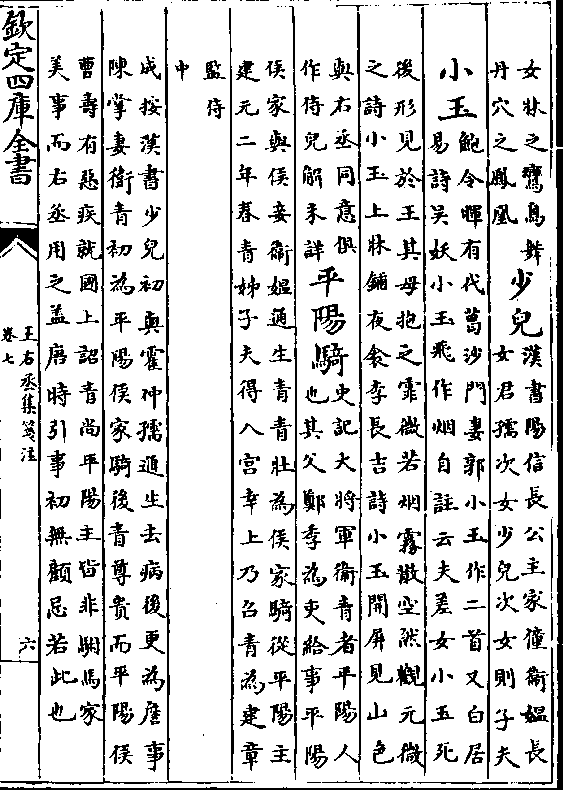 女牀之鸞鳥舞
丹穴之鳳凰
少兒
漢書陽信長公主家僮衛媼長
女君孺次女少兒次女則子夫
小玉
鮑令暉有代葛沙門妻郭小玉作二首又白居
易詩吳妖小玉飛作烟自註云夫差女小玉死
後形見於王其母抱之霏微若烟霧散空然觀元微
之詩小玉上牀鋪夜衾李長吉詩小玉開屏見山色
與右丞同意俱
作侍兒解未詳
平陽騎
史記大將軍衛青者平陽人
也其父鄭季為吏給事平陽
侯家與侯妾衛媼通生青青壯為侯家騎從平陽主
建元二年春青姊子夫得入宮幸上乃召青為建章
監侍
中
成按漢書少兒初與霍仲孺通生去病後更為詹事
陳掌妻衛青初為平陽侯家騎後青尊貴而平陽侯
曹壽有惡疾就國上詔青尚平陽主皆非駙馬家
美事而右丞用之蓋唐時引事初無顧忌若此也
欽定四庫全書
王右丞集箋注
卷七
六